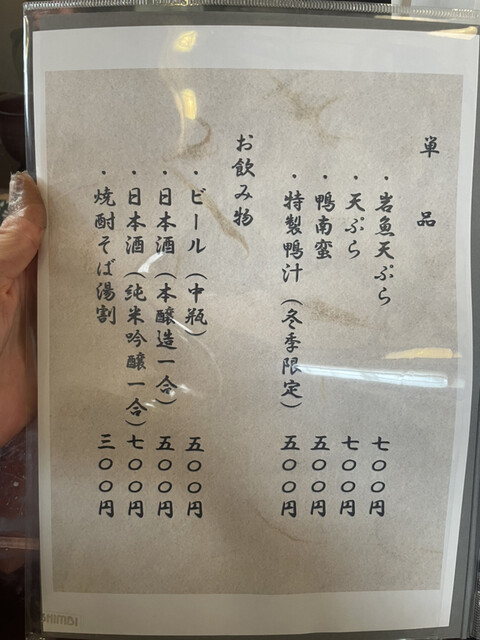 単品
・岩魚天ぷら 七〇〇円
・天ぷら 七〇〇円
・鴨南蛮 五〇〇円
・特製鴨汁（冬季限定） 五〇〇円
お飲み物
・ビール（中瓶） 五〇〇円
・日本酒（本醸造一合） 五〇〇円
・日本酒（純米吟醸一合） 七〇〇円
・焼酎そば湯割 三〇〇円
SHIMBI